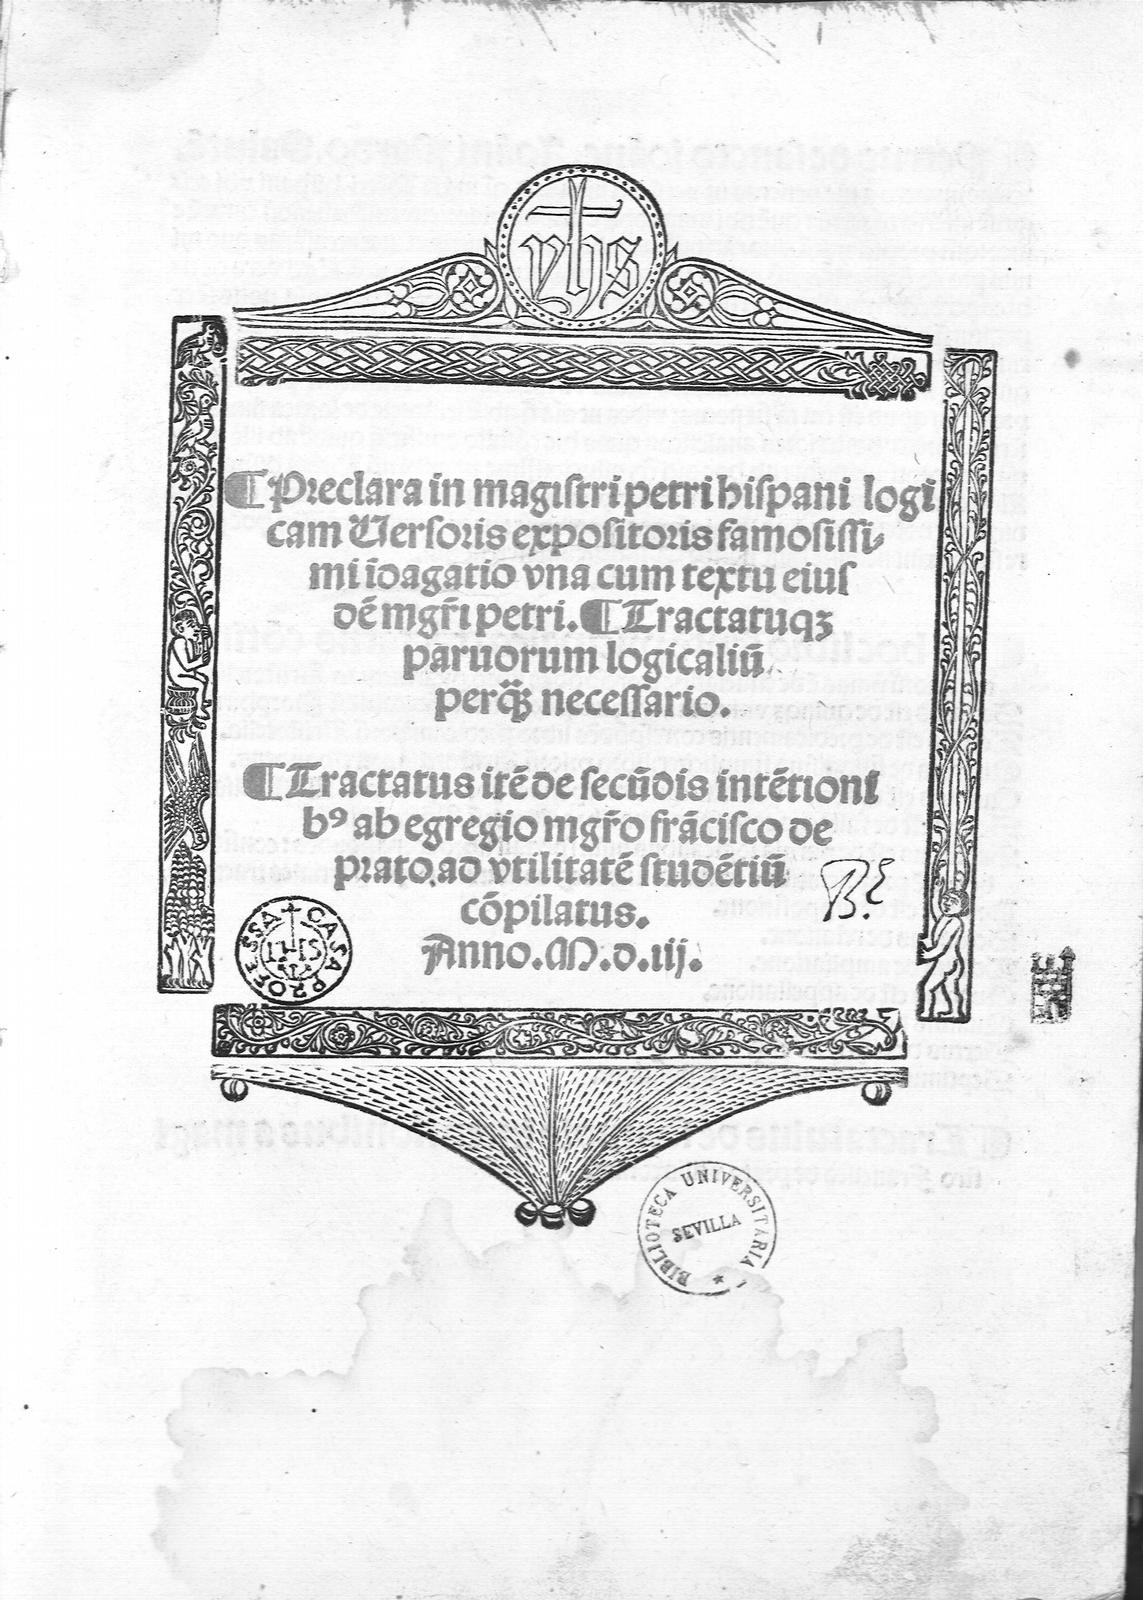 yhs
¶Preclara in magistri petri hispani logi
cam Versoris expositoris famosissi-
mi īdagatio vna cum textu eius
dē mgr̄i petri. ¶Tractatuqꝫ
paruorum logicaliū
necessario.
¶Tractatus itē de secūdis intētioni
bꝰ ab egregio mgr̄o frācisco de
prato. ad vtilitatē studētiū
cōpilatus.
Anno. M.d.iij.
CASA PROFESSA
BIBLIOTECA UNIVERSITARIA
SEVILLA